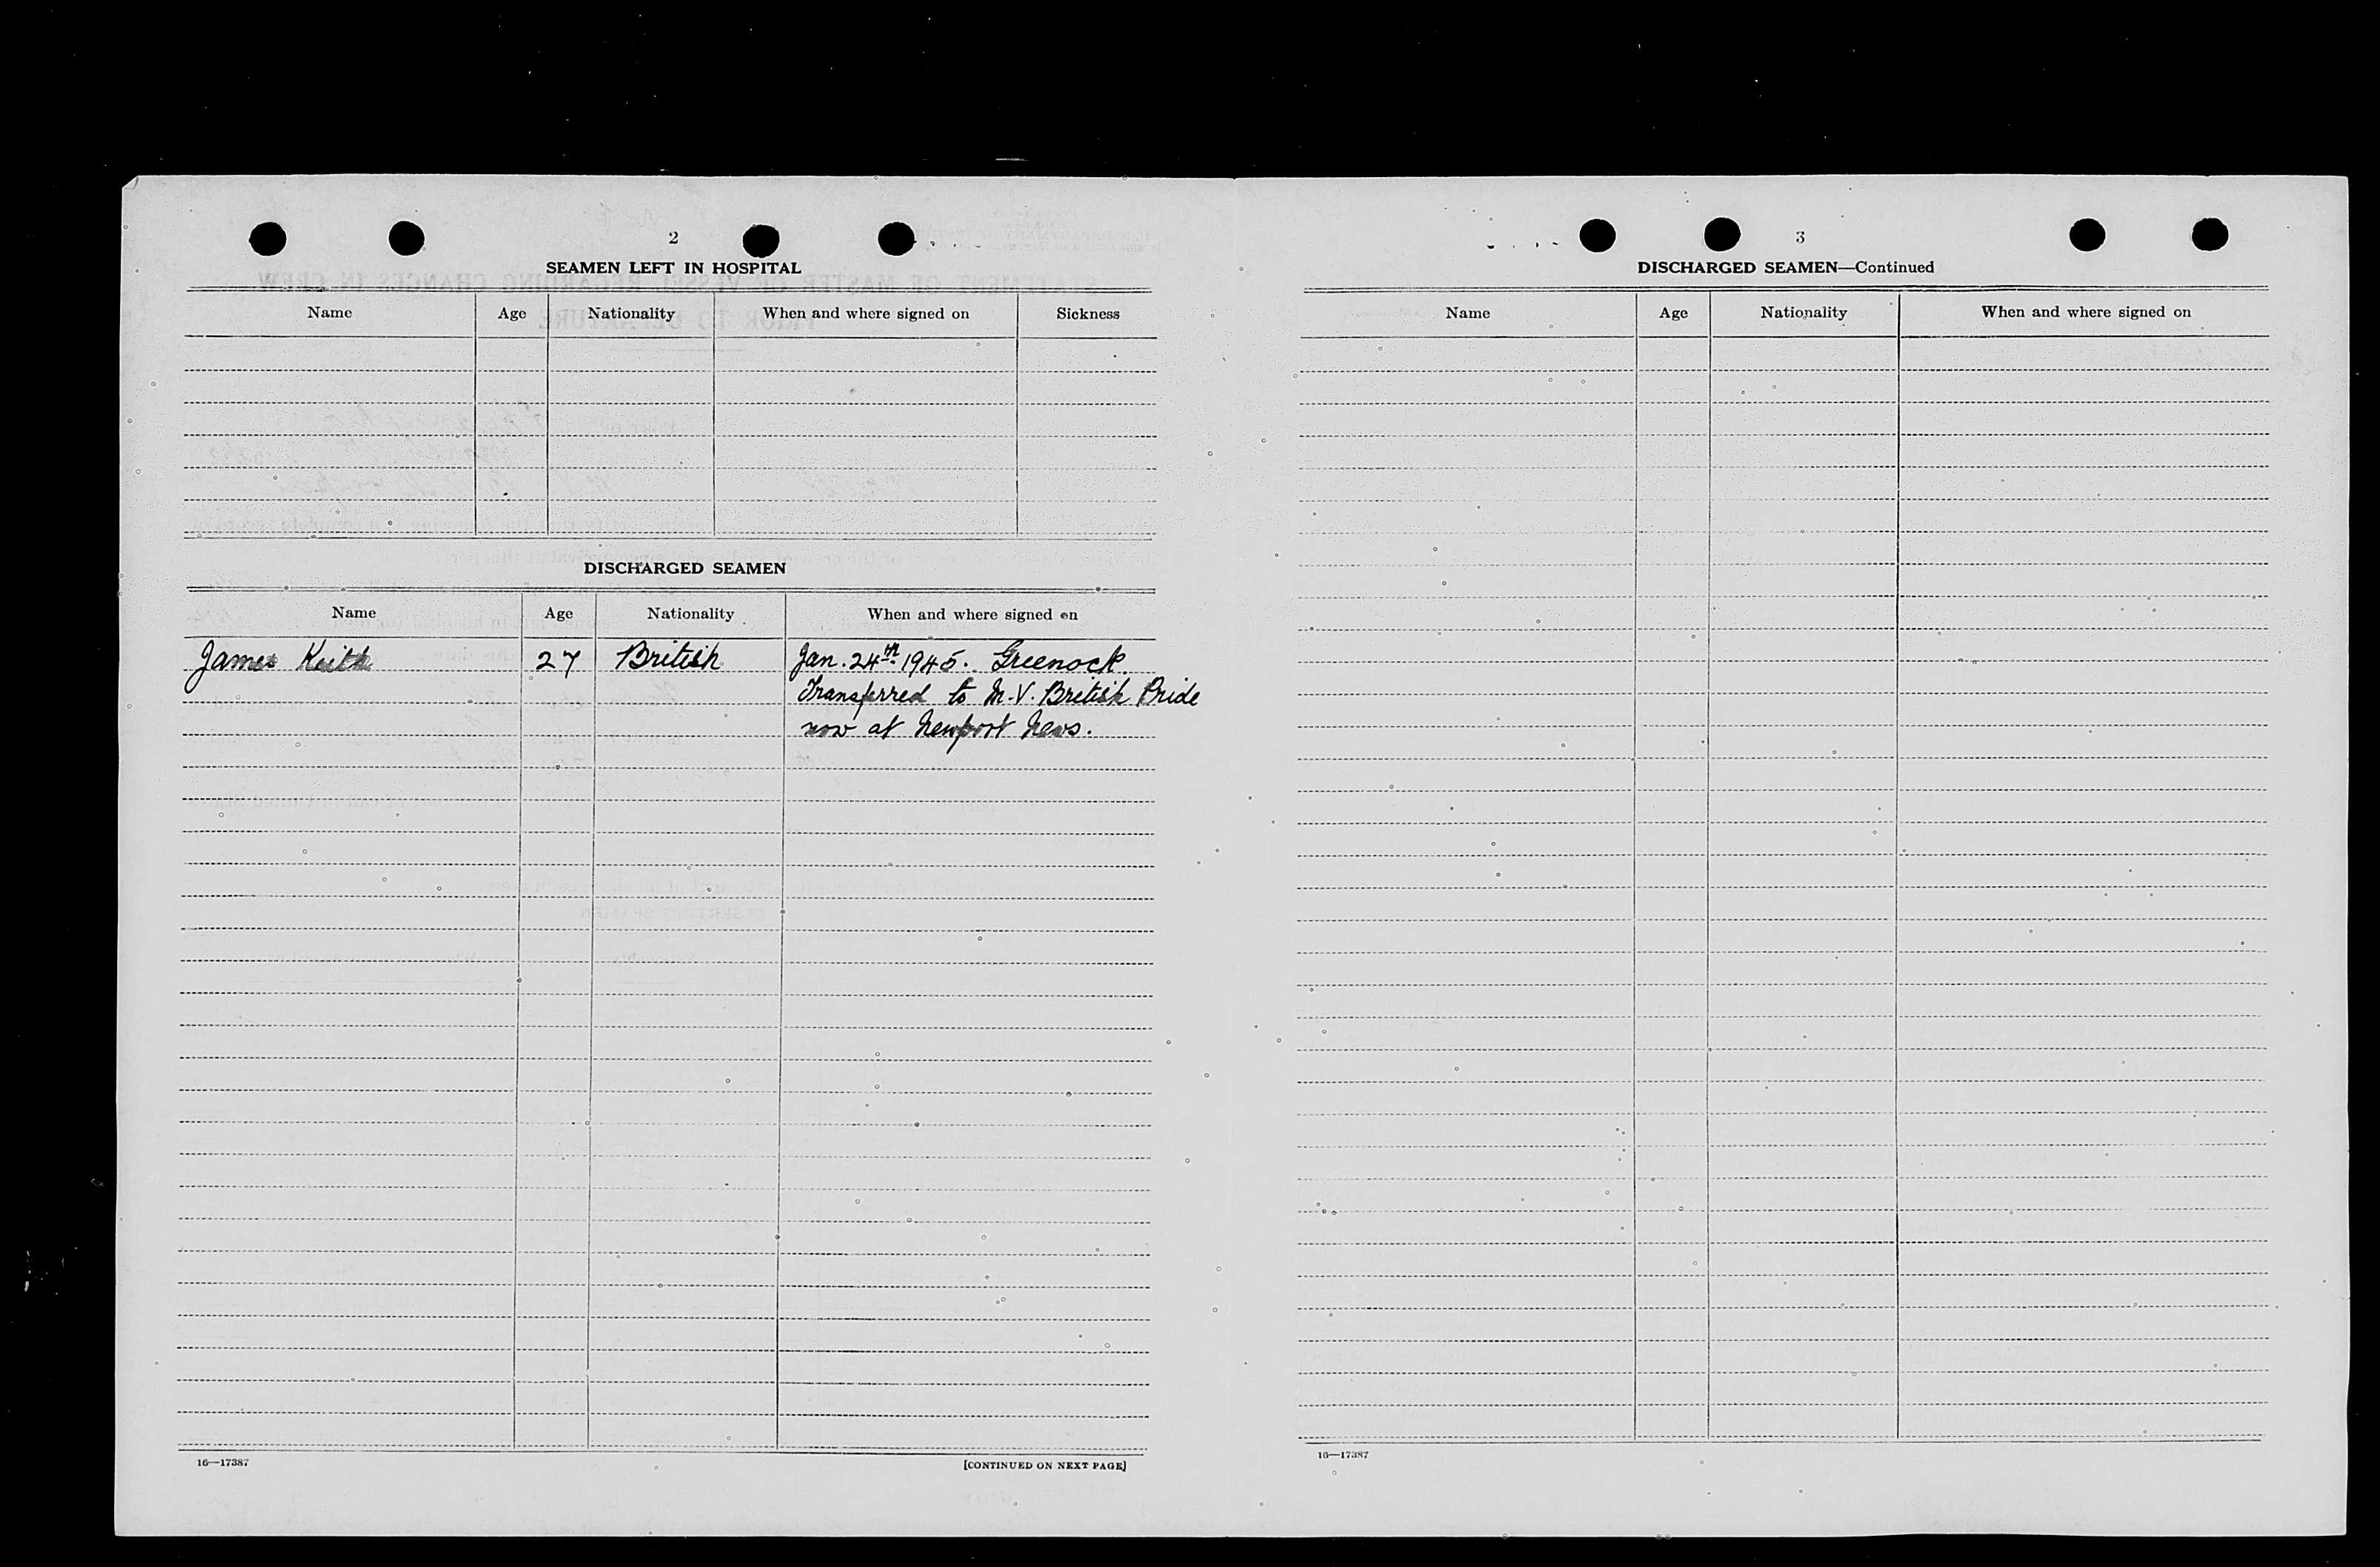 2
SEAMEN LEFT IN HOSPITAL
Name Age Nationality When and where signed on Sickness
DISCHARGED SEAMEN
Name Age Nationality When and where signed on
James Keith 27 British Jan. 24th 1945. Greenock.
Transferred to M.V. British Pride
now at Newport News.
16—17387 [CONTINUED ON NEXT PAGE]
3
DISCHARGED SEAMEN—Continued
Name Age Nationality When and where signed on
16—17387